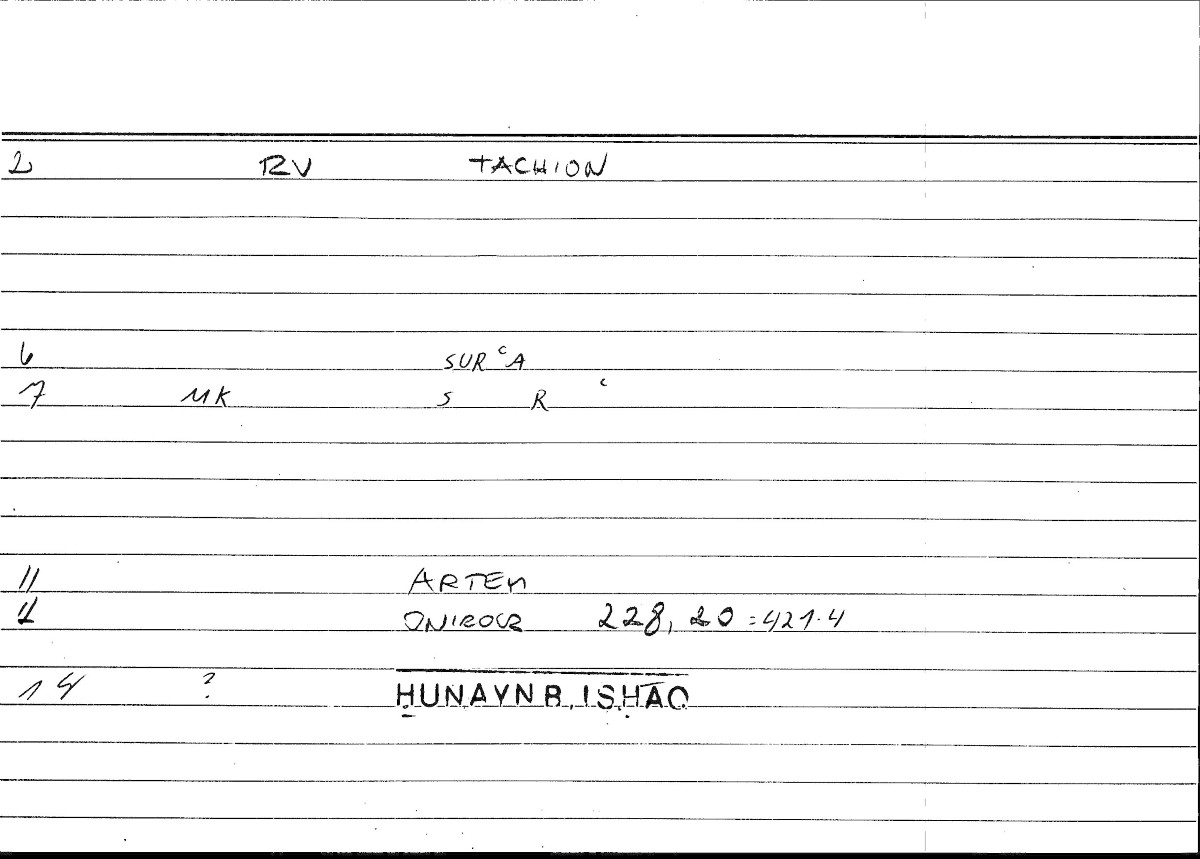 2 RV TACHION
6 SUR ʿA
7 MK S R ʿ
11 ARTEM
12 ONIROCR 228, 20 = 421.4
14 ? ḤUNAYN B. ISḤĀQ